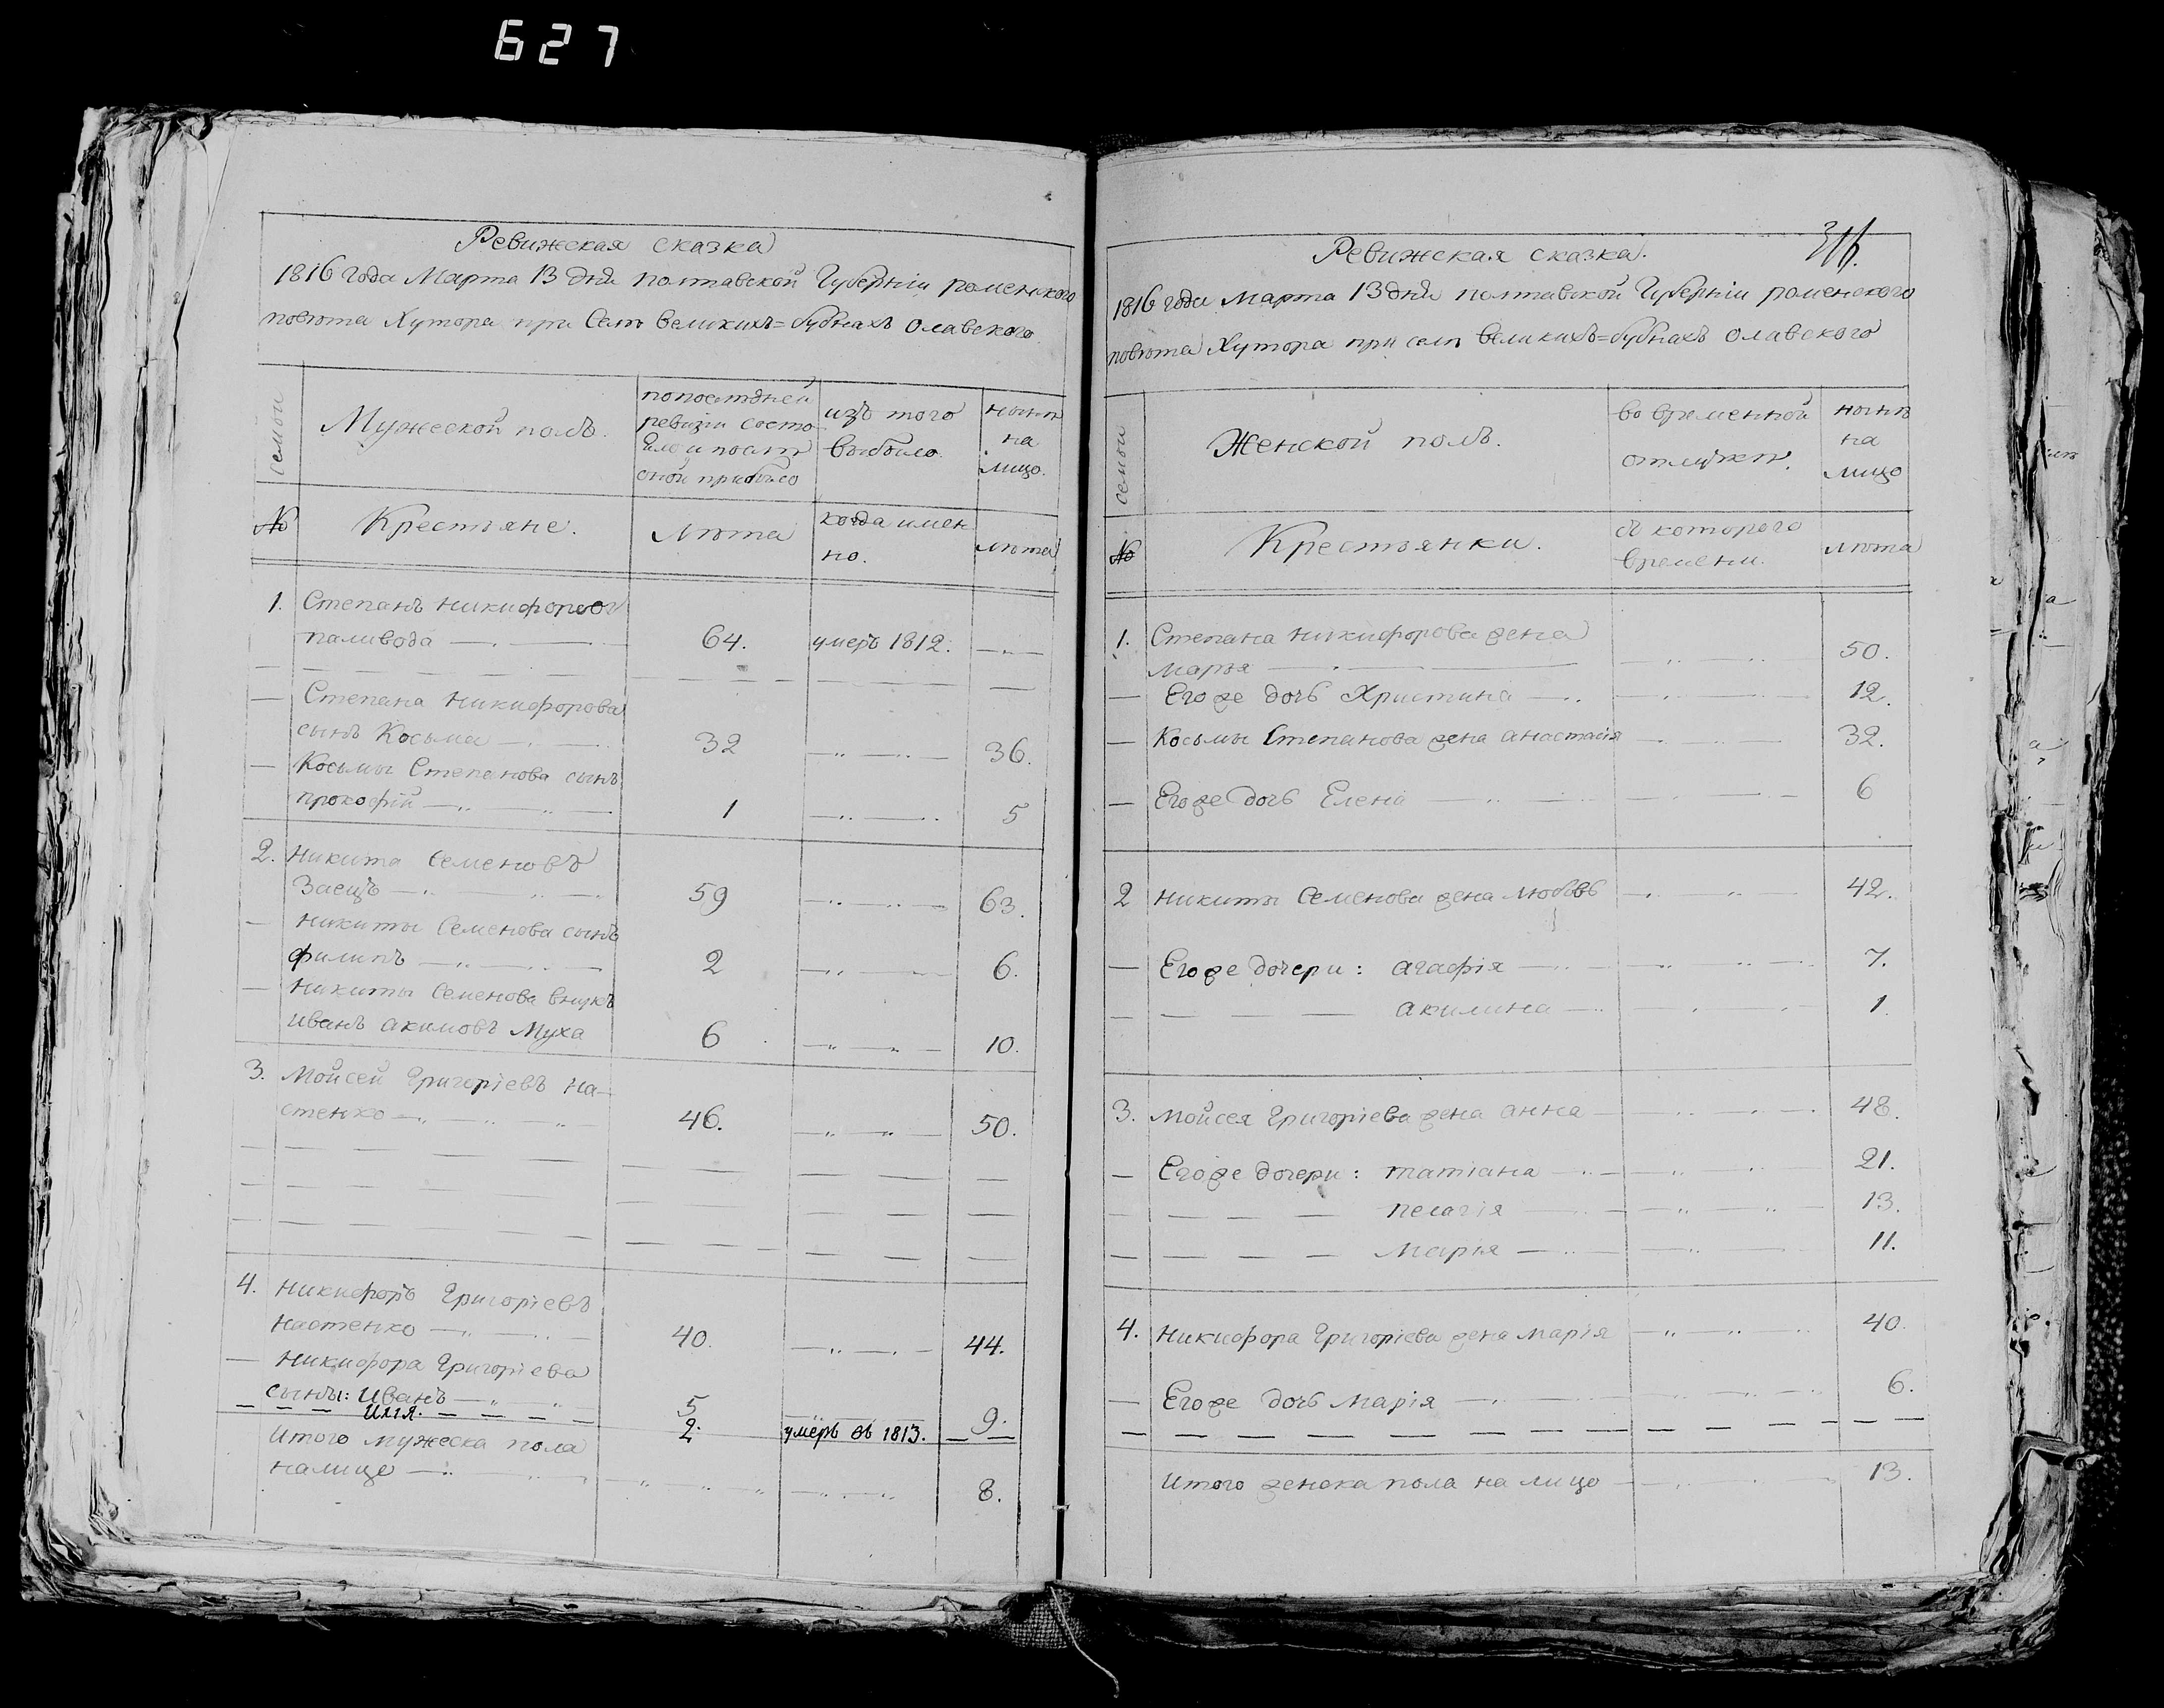 627
Ревижская сказка
1816 года Марта 13 дня полтавской Губерніи роменского
повѣта Хутора при Селѣ Великихъ=бубнахъ олавского
семьи
Мужеской полъ.
попослѣдней
ревизіи состо
яло и послѣ
оной прибыло
изъ того
выбыло.
нынѣ
на
лицо.
№
Крестьяне.
Лѣта
когда имен
но.
лѣта
1. Степанъ никифоровъ
паливода 64. умеръ 1812.
Степана никифорова
сынъ Косьма 32 36.
Косьмы Степанова сынъ
прокофій 1 5
2. Никита Семеновъ
Заецъ 59 63.
никиты Семенова сынъ
филипъ 2 6.
никиты Семенова внукъ
иванъ акимовъ Муха 6 10.
3. Мойсей Григоріевъ на-
стенко 46. 50.
4. Никифоръ Григоріевъ
настенко 40. 44.
Никифора Григоріева
сыны: Иванъ 5 9.
илія. 2. умеръ въ 1813.
Итого мужеска пола
налице 8.
Ревижская сказка.
316.
1816 года Марта 13 дня полтавской Губерніи роменского
повѣта Хутора при селѣ Великихъ=бубнахъ олавского
семьи
Женской полъ.
во временной
отлучкѣ.
нынѣ
на
лицо
№
Крестьянки.
съ которого
времени.
лѣта
1. Степана никифорова жена
марья 50.
Его же дочь Христина 12.
Косьмы Степанова жена анастасія 32.
Его же дочь Елена 6
2 никиты Семенова жена любовь 42.
Его же дочери: агафія 7.
акилина 1
3. Мойсея Григоріева жена анна 48.
Его же дочери: татіана 21.
пелагія 13.
Марія 11.
4. Никифора Григоріева жена марія 40.
Его же дочь Марія 6.
Итого женска пола на лицо 13.